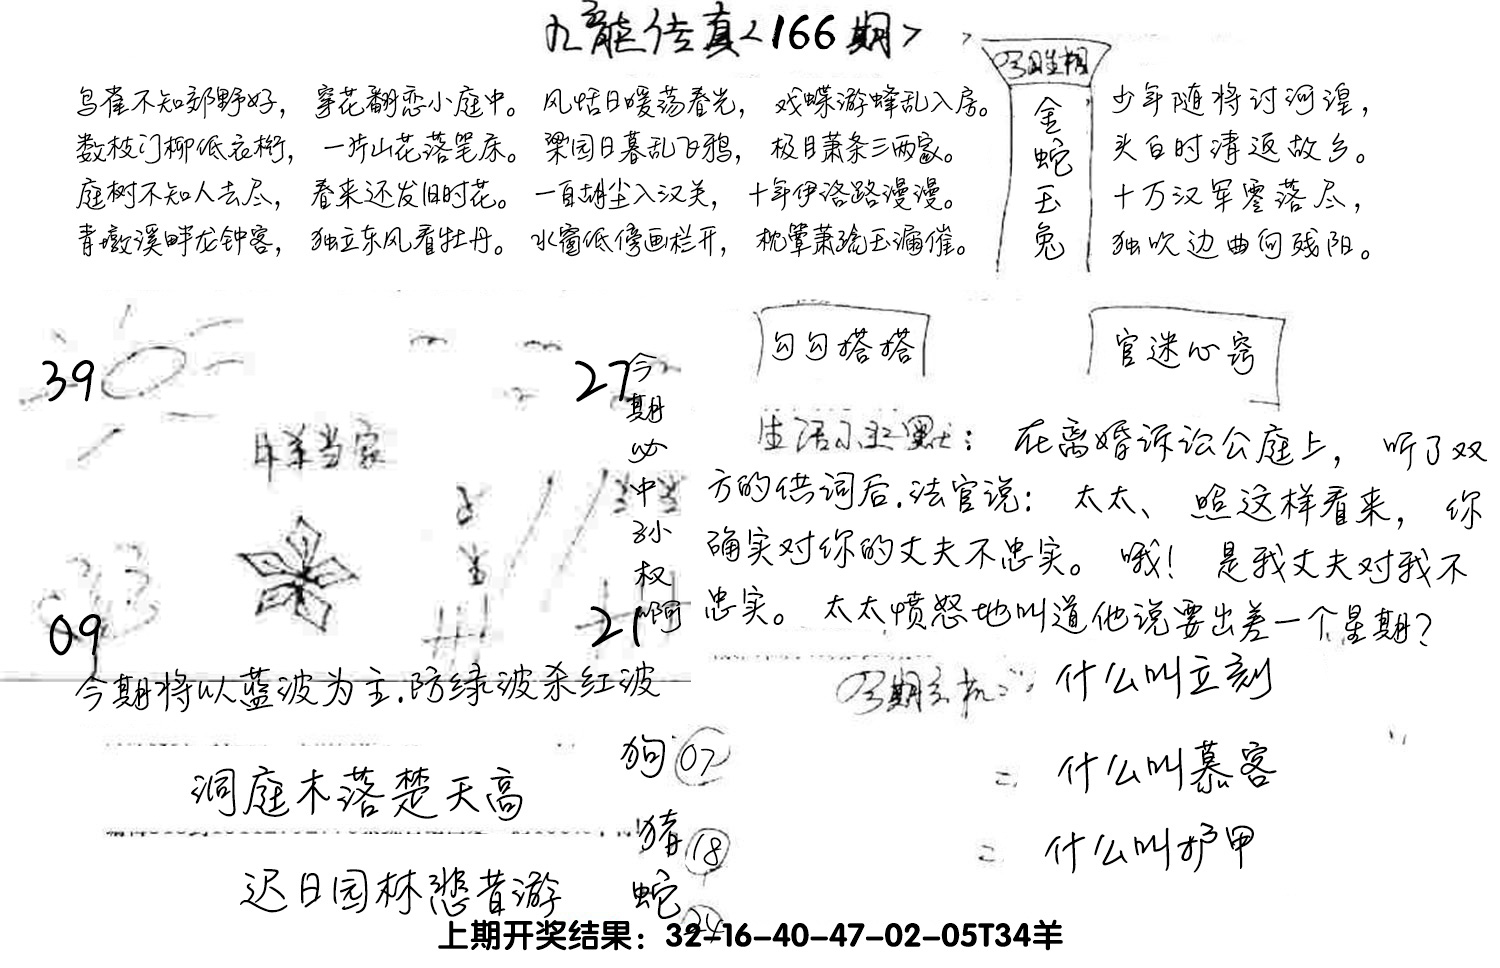 九龍传真<166期>
鸟雀不知郊野好，穿花翻恋小庭中。风恬日暖荡春光，戏蝶游蜂乱入房。
数枝门柳低衣桁，一片山花落笔床。梁园日暮乱飞鸦，极目萧条三两家。
庭树不知人去尽，春来还发旧时花。一自胡尘入汉关，十年伊洛路漫漫。
青墩溪畔龙钟客，独立东风看牡丹。水窗低傍画栏开，枕簟萧疏玉漏催。
金蛇玉兔
少年随将讨河湟，
头白时清返故乡。
十万汉军零落尽，
独吹边曲向残阳。
39
27
09
21
今期必中孙权啊
今期将以蓝波为主.防绿波杀红波
勾勾搭搭
官迷心窍
生活小幽默：在离婚诉讼公庭上，听了双
方的供词后.法官说：太太、照这样看来，你
确实对你的丈夫不忠实。哦！是我丈夫对我不
忠实。太太愤怒地叫道他说要出差一个星期？
什么叫立刻
什么叫慕客
什么叫护甲
洞庭木落楚天高
迟日园林悲昔游
狗 07
猪 18
蛇
上期开奖结果：32-16-40-47-02-05T34羊